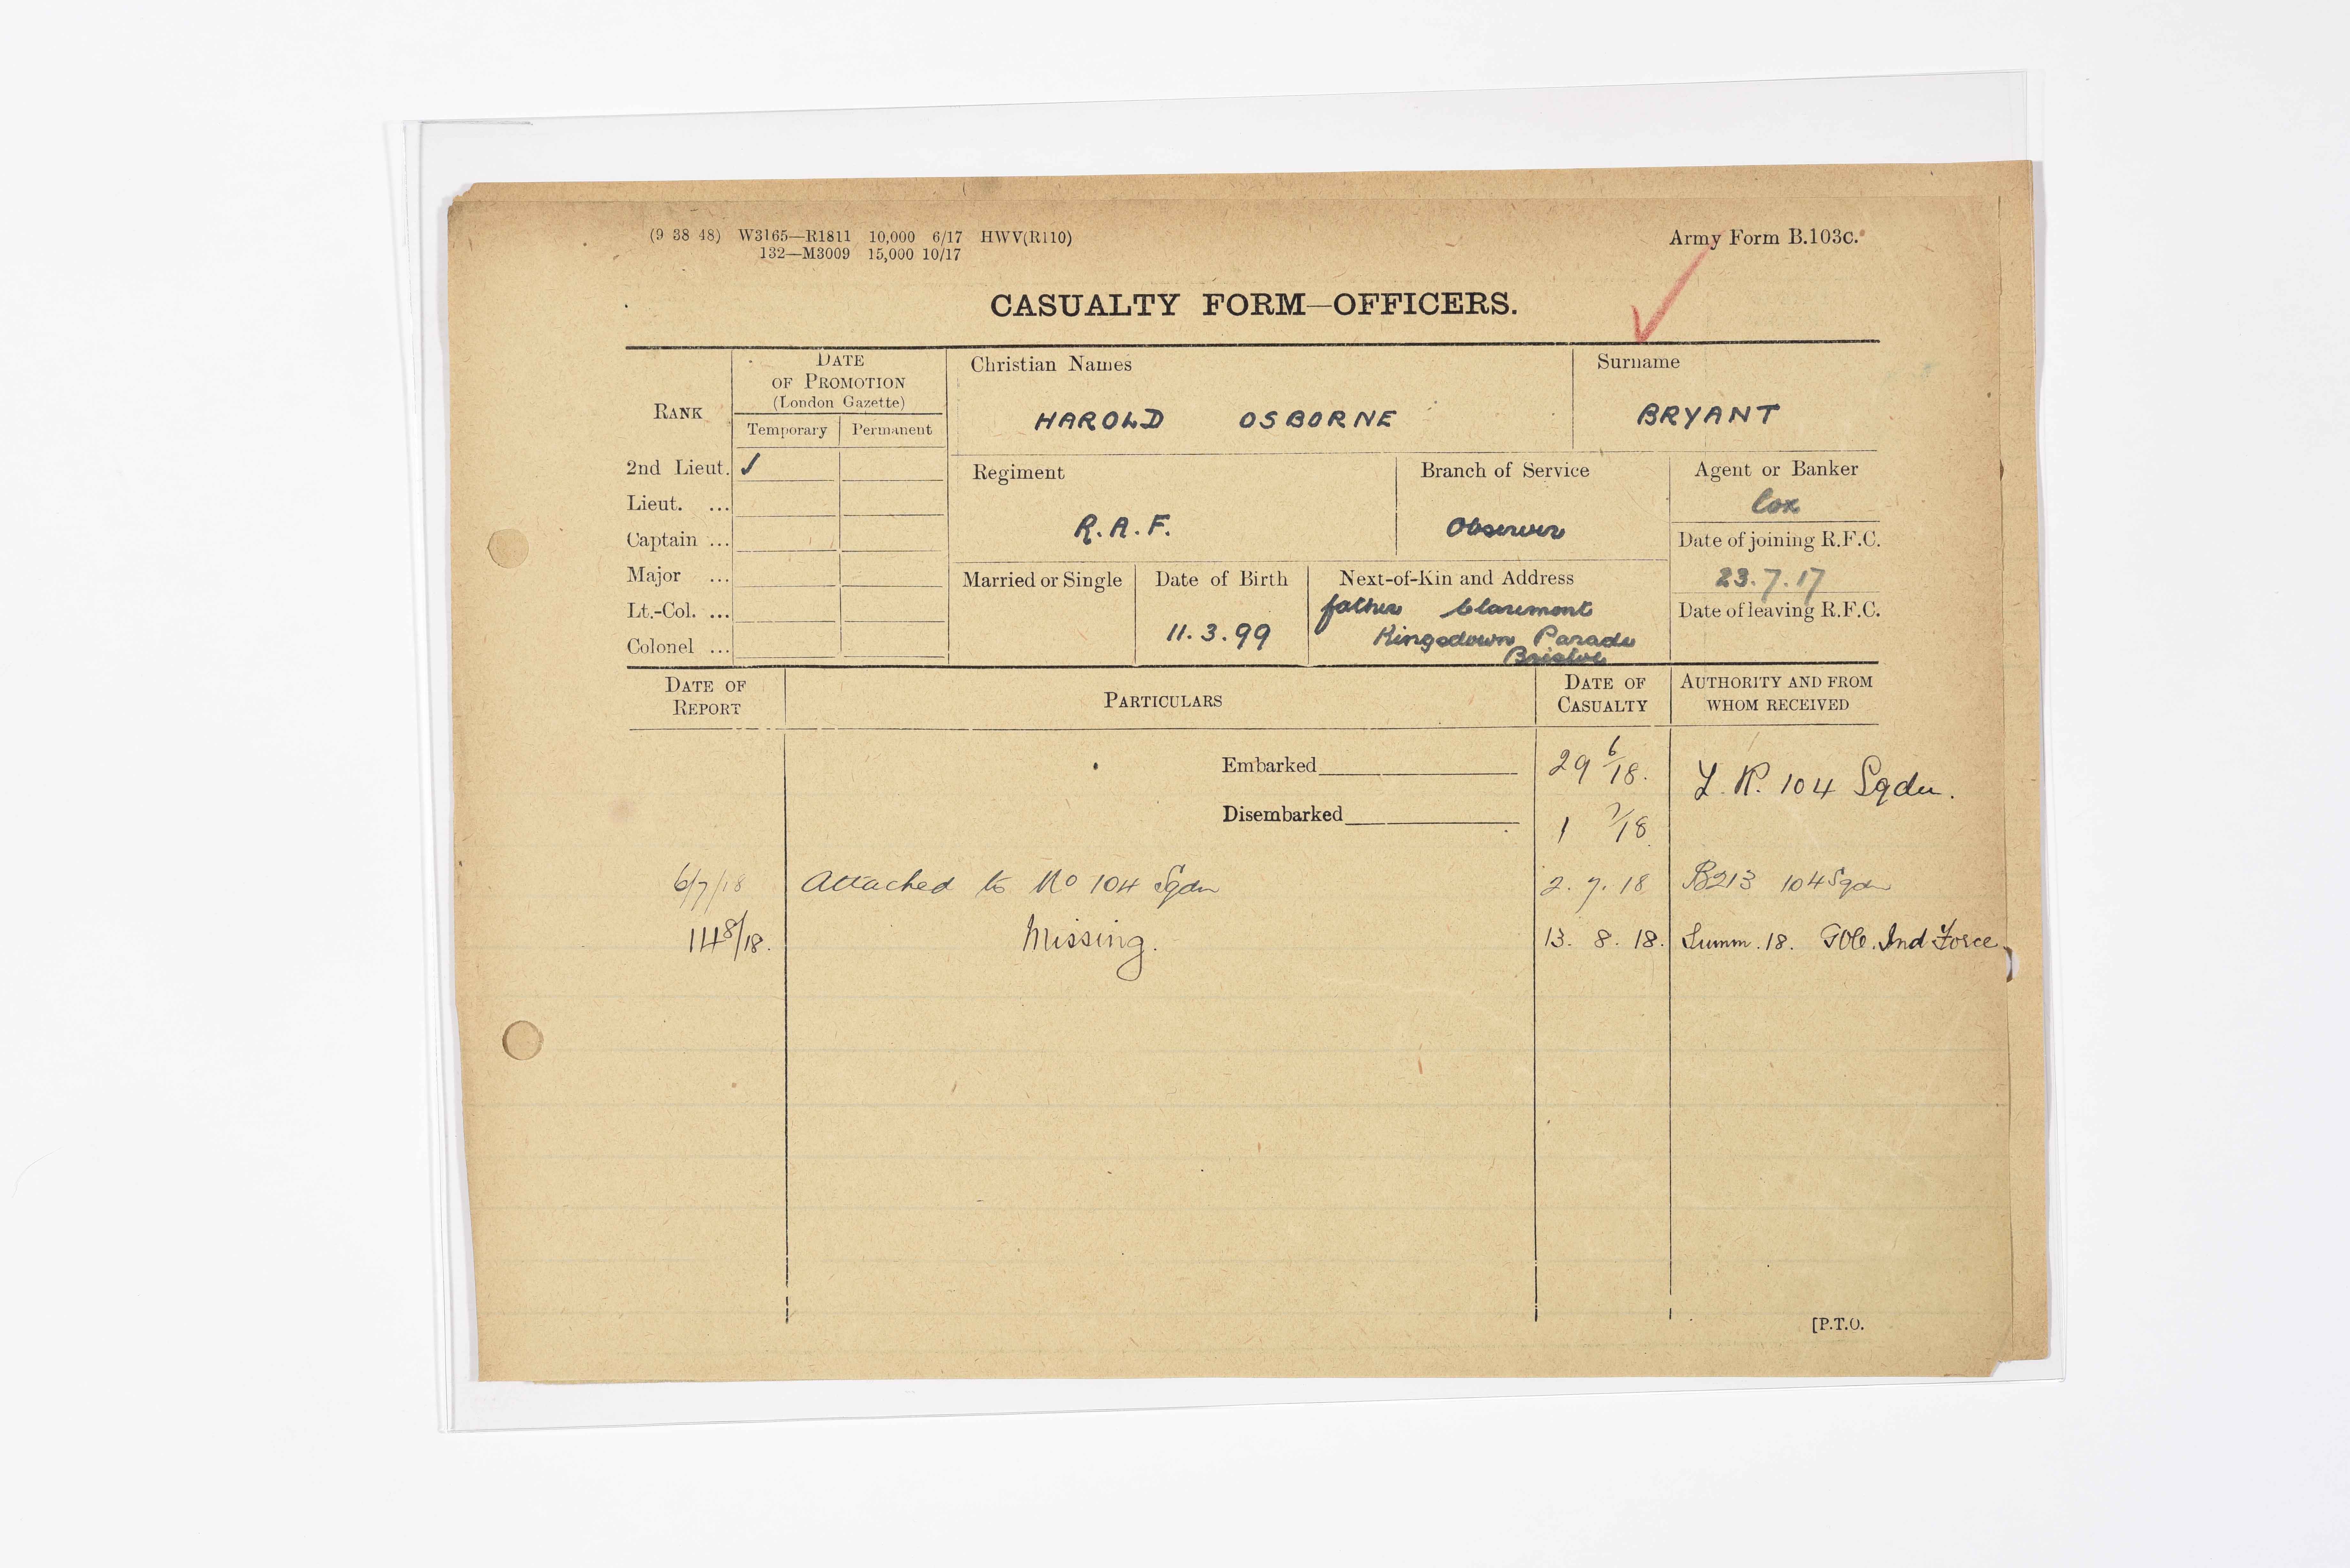 (9 38 48) W3165—R1811 10,000 6/17 HWV(R110)
132—M3009 15,000 10/17
Army Form B.103c.
CASUALTY FORM—OFFICERS.
RANK
DATE OF PROMOTION (London Gazette)
Temporary Permanent
Christian Names
HAROLD OSBORNE
Surname
BRYANT
2nd Lieut. ✓
Lieut. ...
Captain ...
Major ...
Lt.-Col. ...
Colonel ...
Regiment
R.A.F.
Branch of Service
Observer
Agent or Banker
Cox
Date of joining R.F.C.
23.7.17
Date of leaving R.F.C.
Married or Single
Date of Birth
11.3.99
Next-of-Kin and Address
father Claremont
Kingsdown Parade
Bristol
DATE OF REPORT
PARTICULARS
DATE OF CASUALTY
AUTHORITY AND FROM WHOM RECEIVED
Embarked 29 6/18.
Disembarked 1 7/18
104 Sqdn.
6/7/18 Attached to No 104 Sqdn 2.7.18 B213 104 Sqdn
14 8/18. Missing. 13. 8. 18. Summ. 18. GOC. Ind Force
[P.T.O.